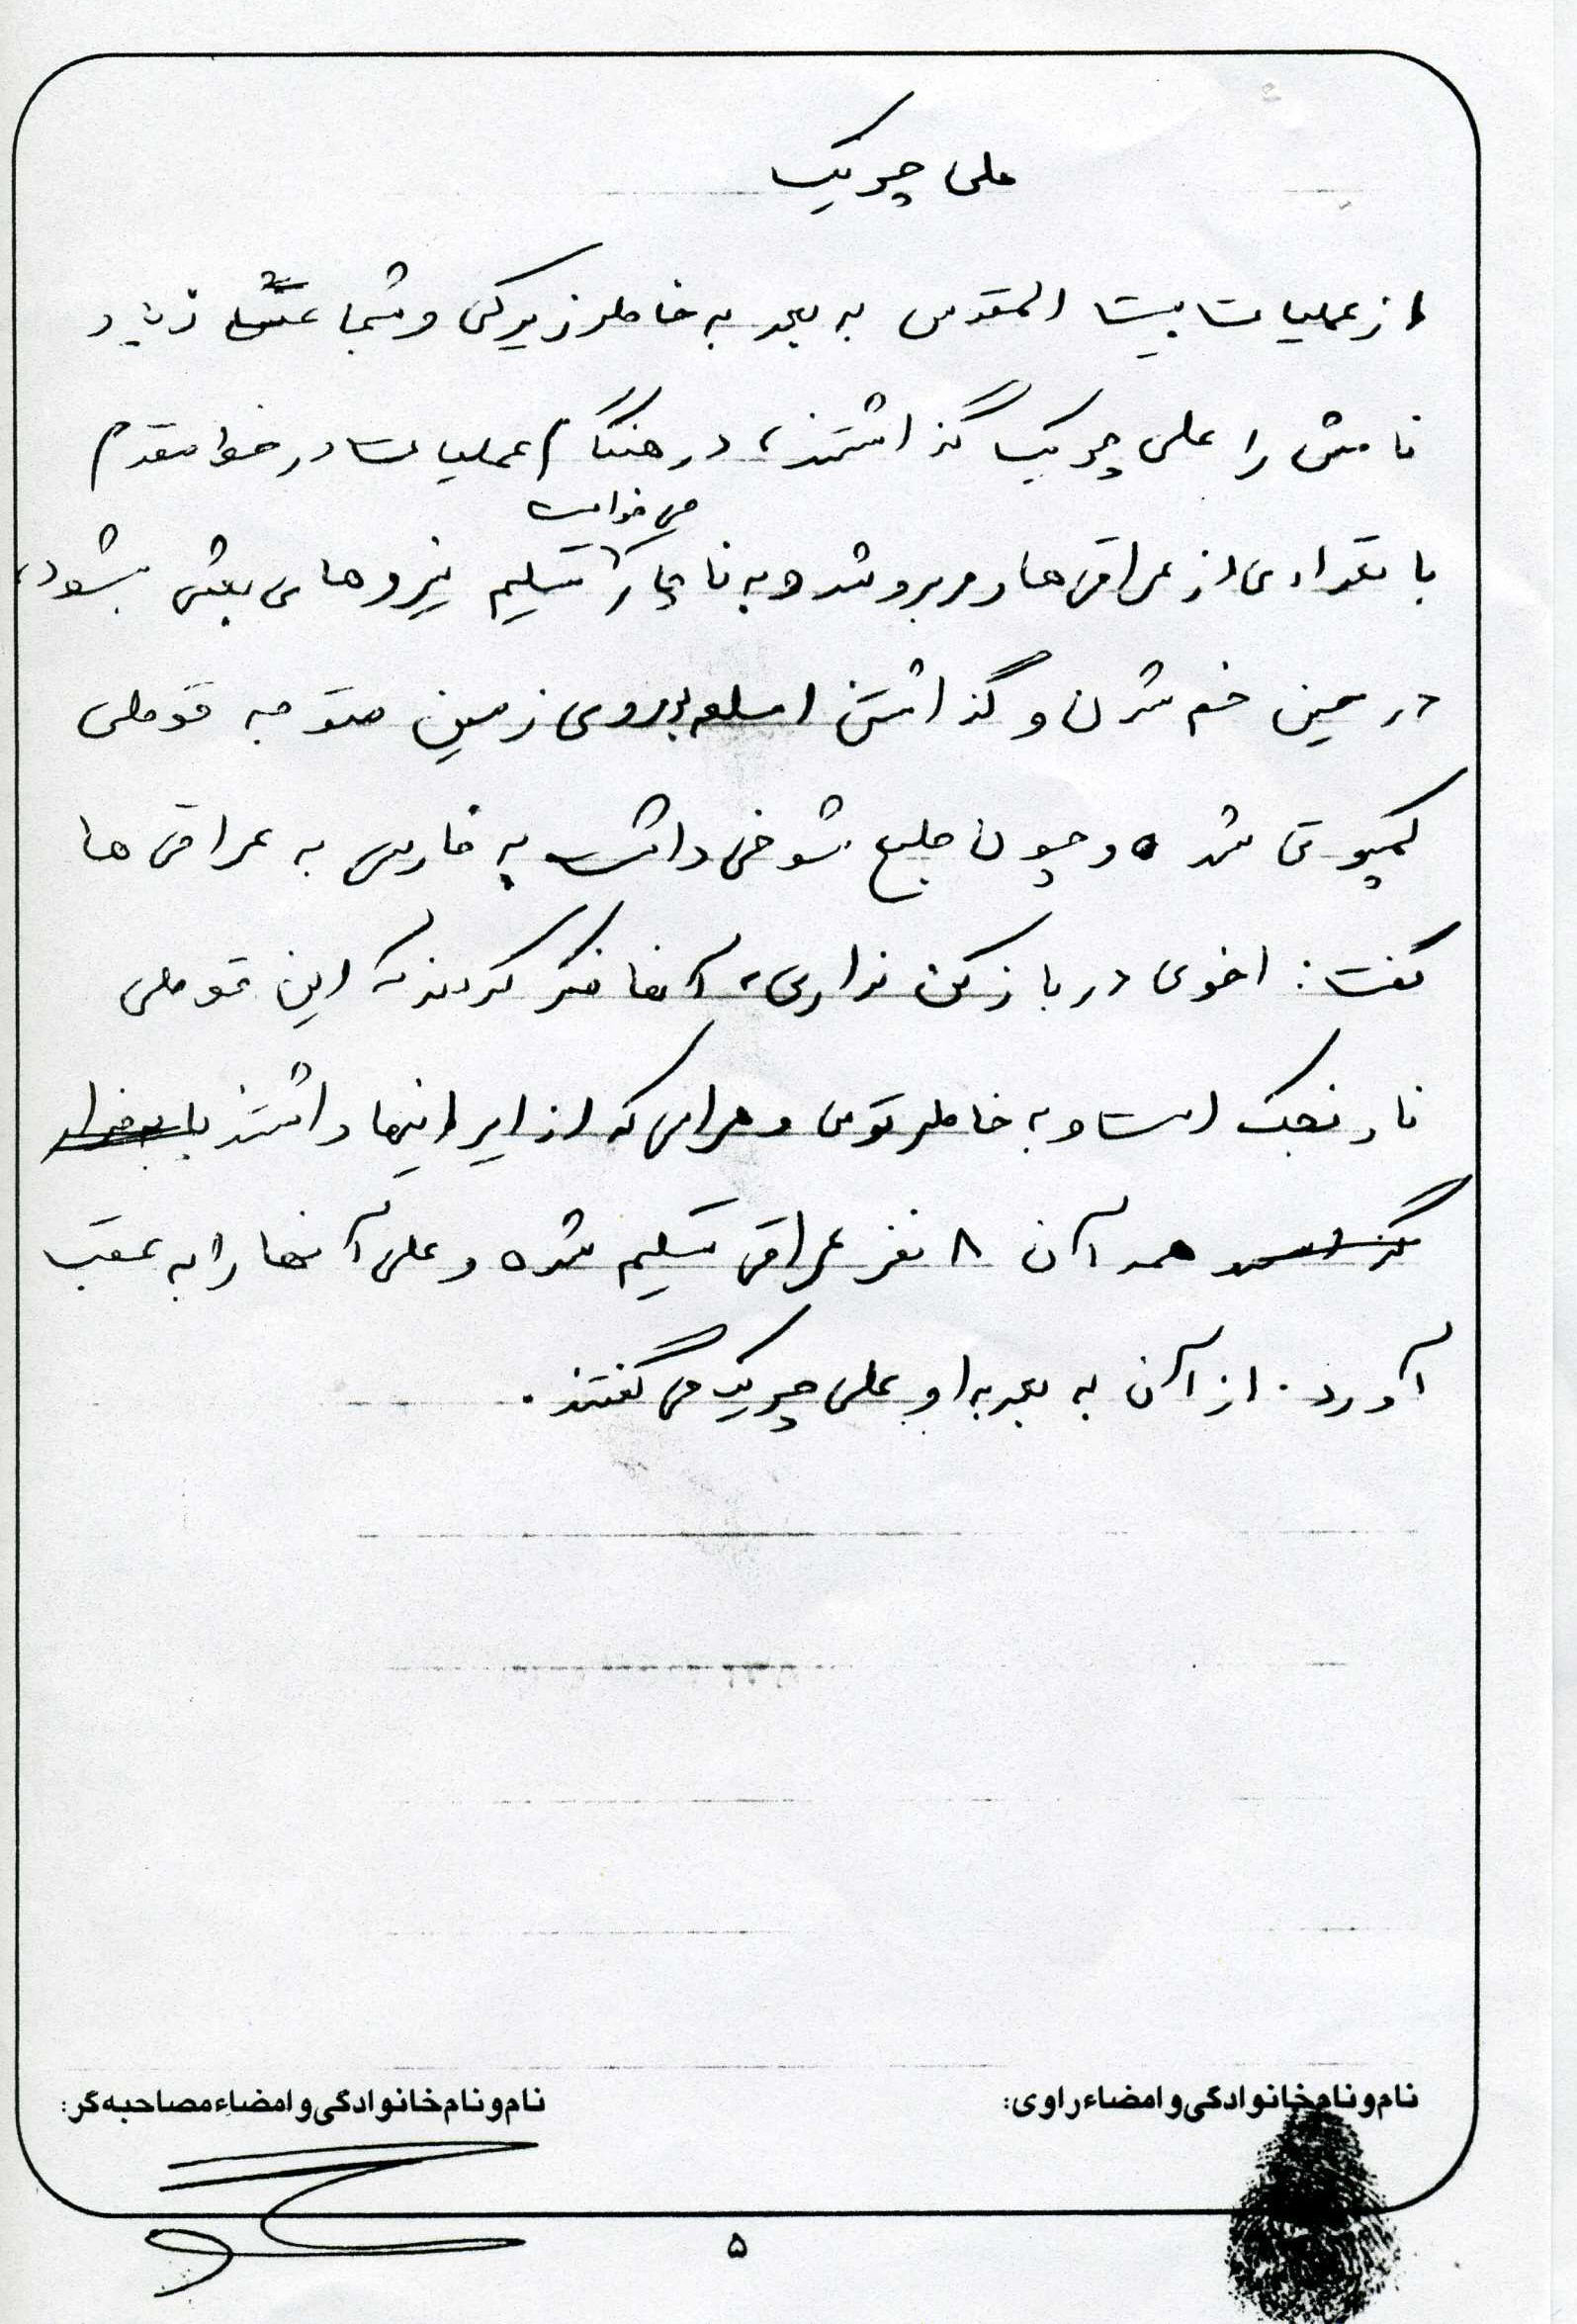 علی چریک
از عملیات بیت المقدس به بعد به خاطر زیرکی و شجاعتش زیاد
نامش را علی چریک گذاشتند، در هنگام عملیات در خط مقدم
می خواست
با تعدادی از عراقی ها روبرو شد و به ناچار تسلیم نیروهای بعثی بشود،
در حین خم شدن و گذاشتن اسلحه بروی زمین متوجه قوطی
کمپوتی شده و چون طبع شوخی داشت به فارسی به عراقی ها
گفت: اخوی در باز کن نداری، آنها فکر کردند که این قوطی
نارنجک است و به خاطر ترس و هراسی که از ایرانیها داشتند
همه آن ۸ نفر عراقی تسلیم شده و علی آنها را به عقب
آورد. از آن به بعد به او علی چریک می گفتند.
نام و نام خانوادگی و امضاء راوی:
نام و نام خانوادگی و امضاء مصاحبه گر:
۵